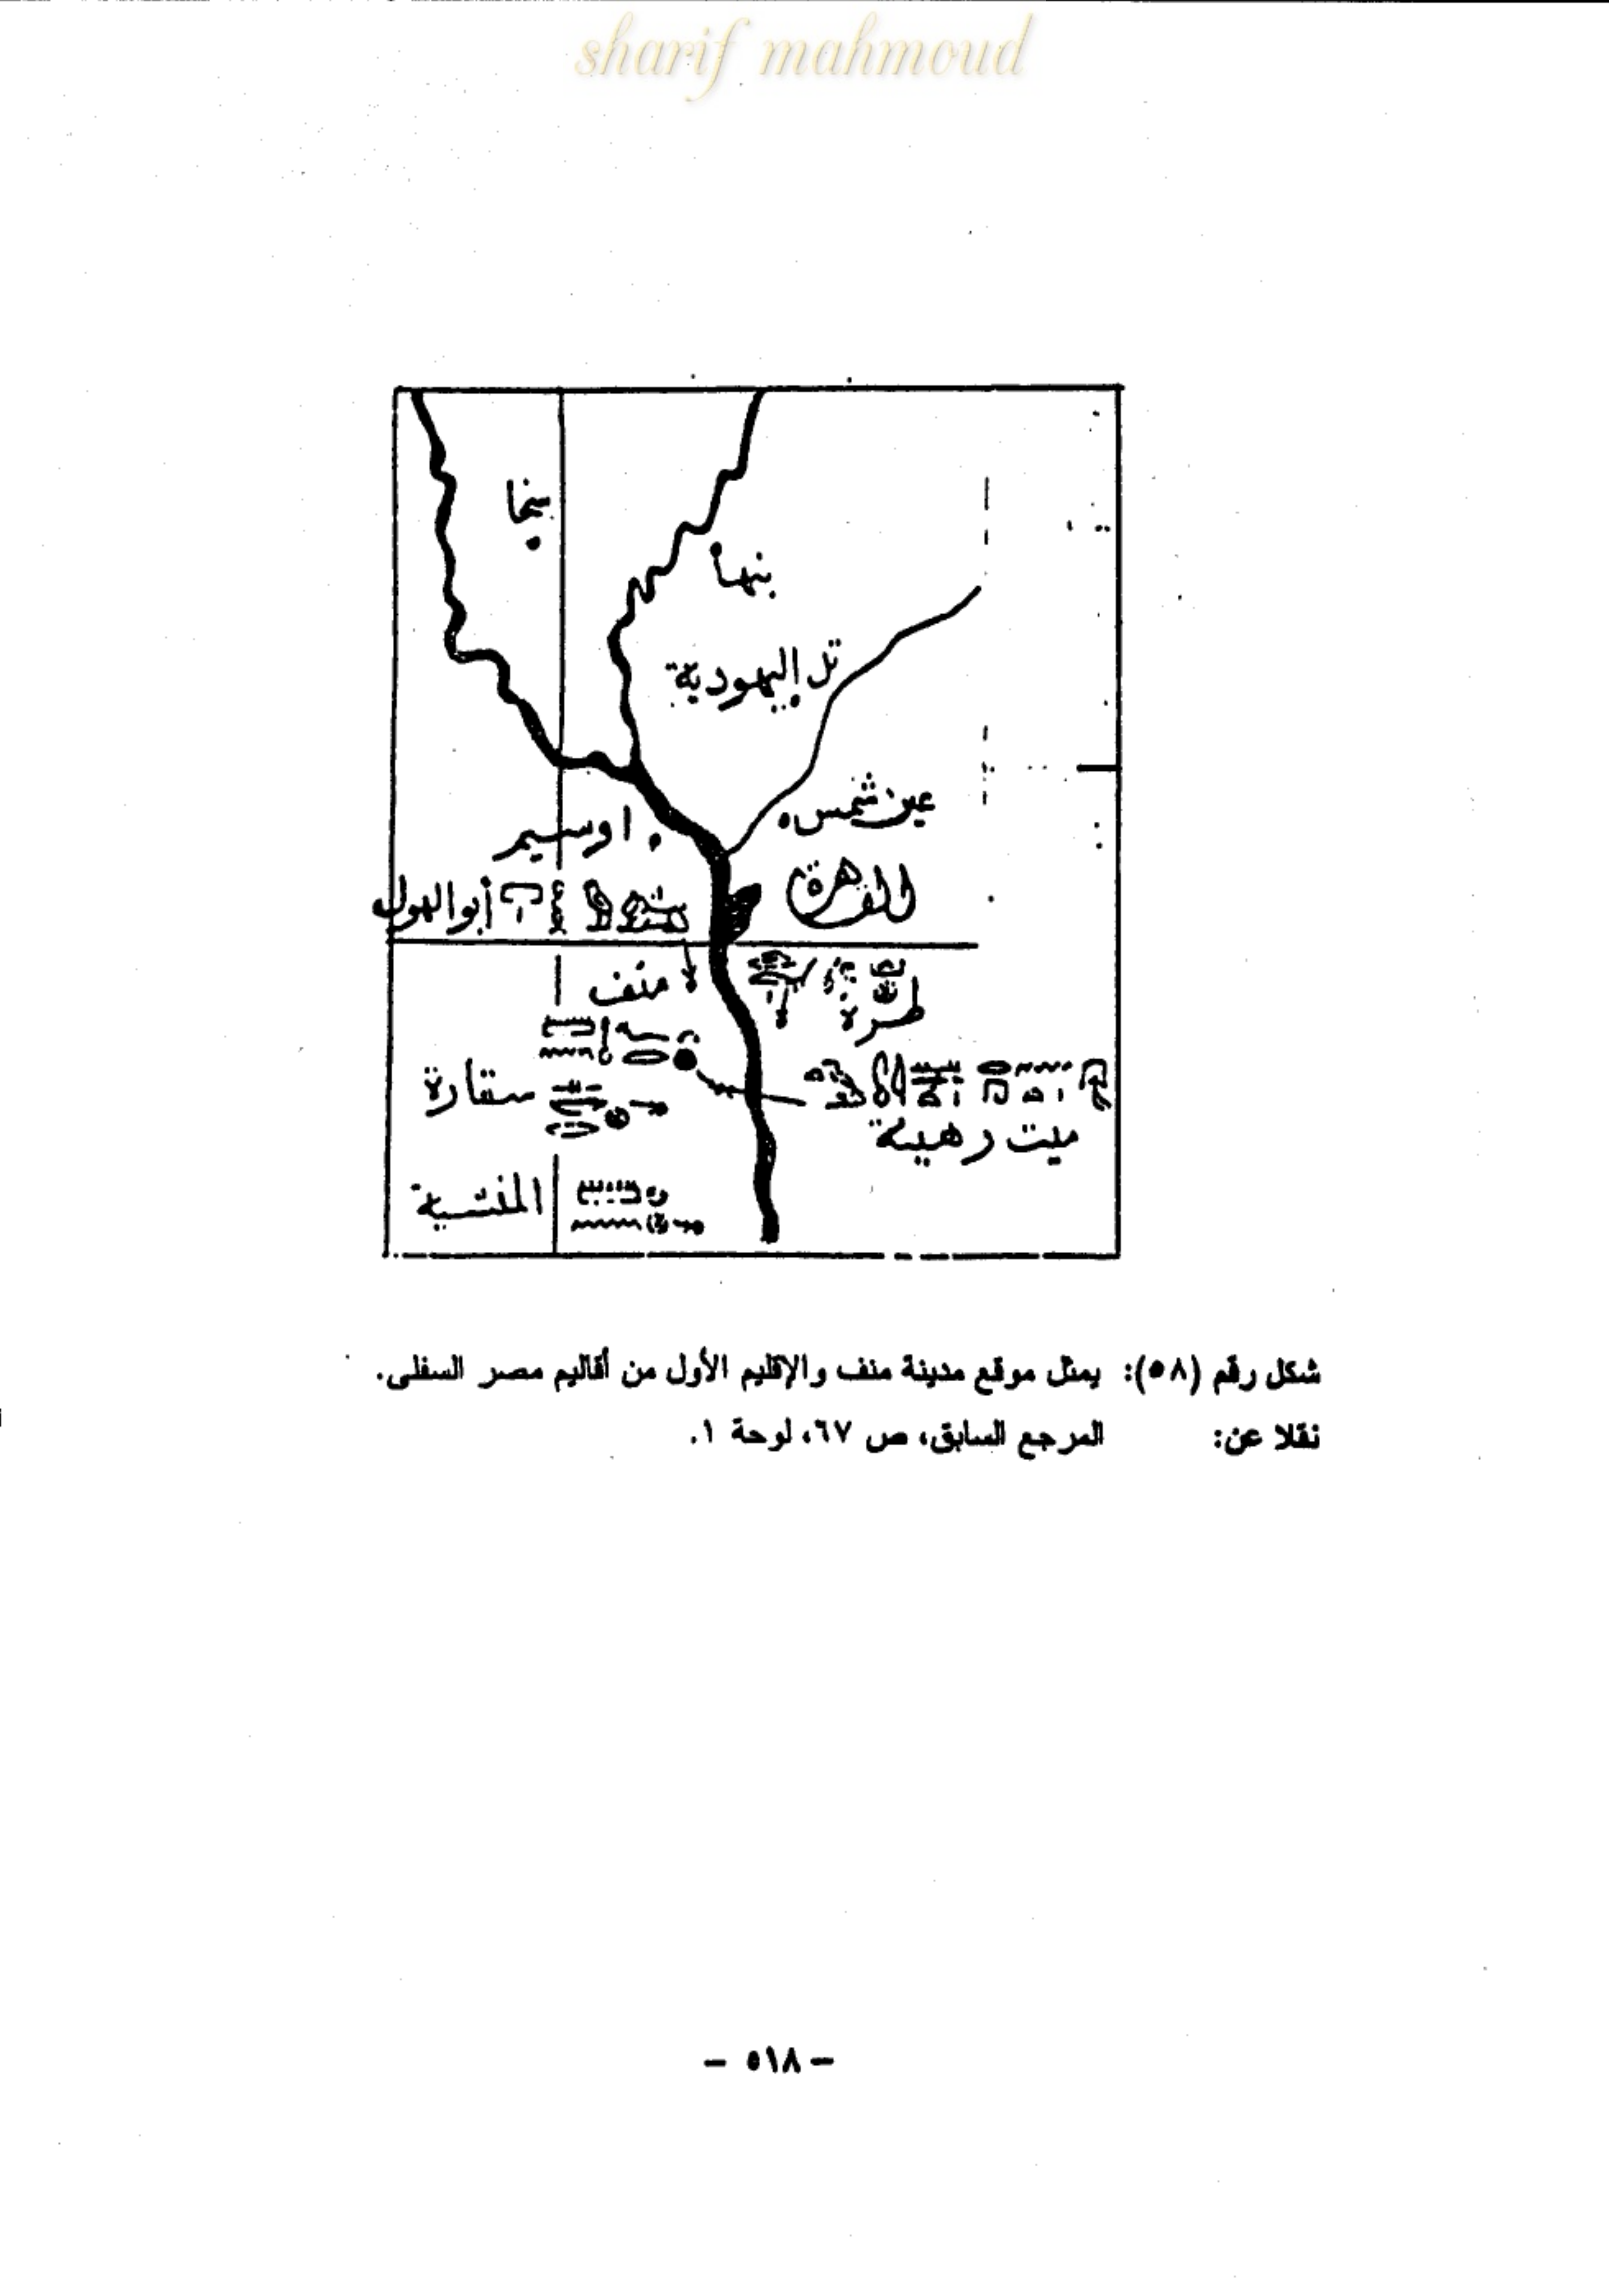 sharif mahmoud
بنها
تل اليهودية
عين شمس
اوسيم
القاهرة
أبوالهول
منف
طرة
سقارة
ميت رهينة
شكل رقم (٥٨): يمثل موقع مدينة منف والإقليم الأول من أقاليم مصر السفلى.
نقلا عن: المرجع السابق، ص ٦٧، لوحة ١.
– ٥١٨ –